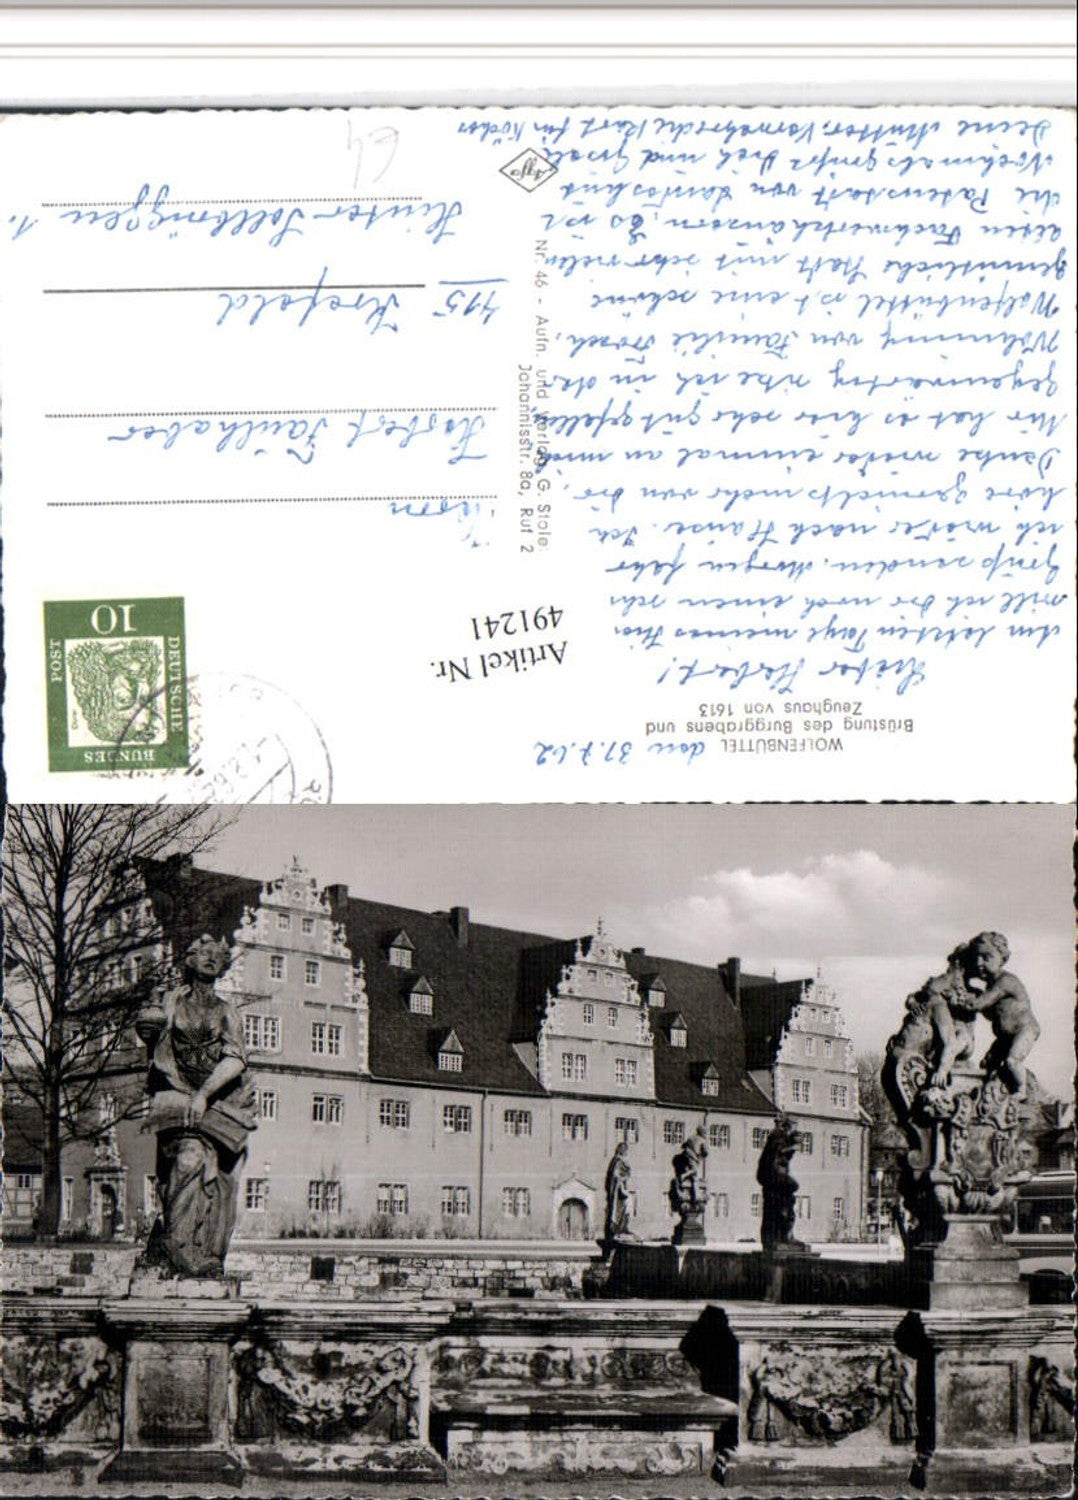 WOLFENBÜTTEL den 31.7.62
Brüstung des Burggrabens und
Zeughaus von 1613
Lieber Herbert!
Am letzten Tage meines Hier
will ich Dir noch einen sehr
Gruß senden. Morgen fahr
ich wieder nach Hause. Ich
höre garnichts mehr von Dir.
Denke wieder einmal an mich
Mir hat es hier sehr gut gefallen
Gegenwärtig sitze ich in der
Wohnung von Familie
Wolfenbüttel ist eine schöne
gemütliche Stadt mit sehr vielen
alten Fachwerkhäusern. Es ist
die Patenstadt von Landeshut
Nochmals grüßt Dich und
Deine Mutter. Karte für
Artikel Nr.
491241
Nr. 46 - Aufn. und Verlag G. Stole,
Johannisstr. 8a, Ruf 2
Agfa
DEUTSCHE
BUNDES
POST
10
Herrn
Herbert Faulhaber
415 Krefeld
Hinter Sollbrüggen 1.